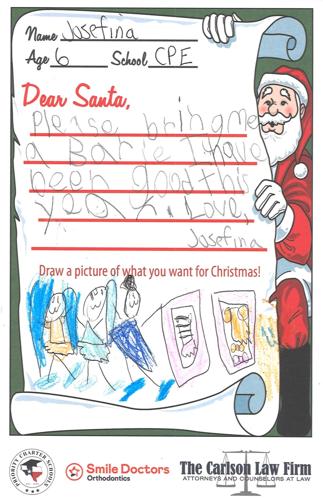 Name Josefina
Age 6 School CPE
Dear Santa,
Please bring me
a Barie I have
been good this
year. Love,
Josefina
Draw a picture of what you want for Christmas!
PRIORITY CHARTER SCHOOLS
Smile Doctors
Orthodontics
The Carlson Law Firm
ATTORNEYS AND COUNSELORS AT LAW